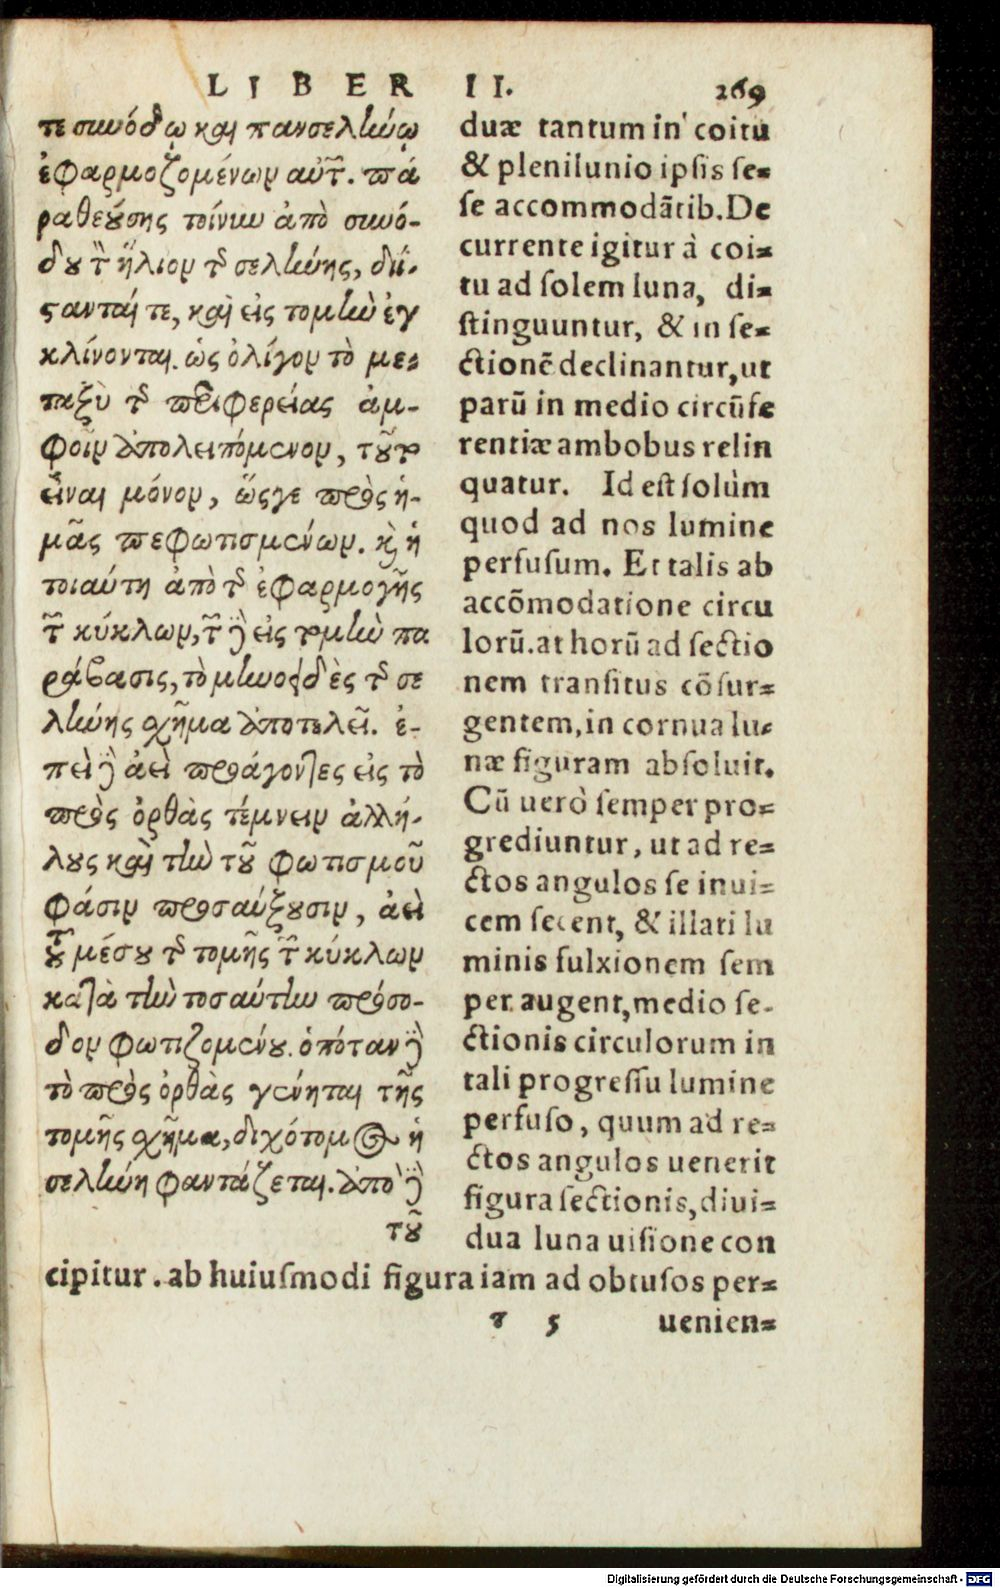 LIBER II. 269
τε συνόδῳ καὶ πανσελήνῳ
ἐφαρμοζομένων αὐτῶν. πα
ραθεούσης τοίνυν ἀπὸ συνό-
δου τὸν ἥλιον τῆς σελήνης, διί-
στανταί τε, καὶ εἰς τομὴν ἐγ
κλίνονται. ὡς ὀλίγον τὸ με-
ταξὺ τῆς περιφερείας ἀμ-
φοῖν ἀπολειπόμενον, τοῦτο
εἶναι μόνον, ὥςγε πρὸς ἡ-
μᾶς πεφωτισμένων. καὶ ἡ
τοιαύτη ἀπὸ τῆς ἐφαρμογῆς
τῶν κύκλων, τῶν δὲ εἰς τομὴν πα
ράβασις, τὸ μηνοειδὲς τῆς σε
λήνης σχῆμα ἀποτελεῖ. ἐ-
πεὶ δὲ ἀεὶ προάγοντες εἰς τὸ
πρὸς ὀρθὰς τέμνειν ἀλλή-
λους καὶ τὴν τοῦ φωτισμοῦ
φάσιν προσαύξουσιν, ἀεὶ
τοῦ μέσου τῆς τομῆς τῶν κύκλων
κατὰ τὴν τοσαύτην πρόσο-
δον φωτιζομένου. ὁπόταν δὲ
τὸ πρὸς ὀρθὰς γένηται τῆς
τομῆς σχῆμα, διχότομος ἡ
σελήνη φαντάζεται. ἀπὸ δὲ
τοῦ
duæ tantum in coitu
& plenilunio ipsis se=
se accommodãtib. De
currente igitur à coi=
tu ad solem luna, di=
stinguuntur, & in se=
ctionẽ declinantur, ut
parũ in medio circũfe
rentiæ ambobus relin
quatur. Id est solùm
quod ad nos lumine
perfusum. Et talis ab
accõmodatione circu
lorũ. at horũ ad sectio
nem transitus cõsur=
gentem, in cornua lu=
næ figuram absoluit.
Cũ uerò semper pro=
grediuntur, ut ad re=
ctos angulos se inui=
cem secent, & illati lu
minis fulxionem sem
per augent, medio se-
ctionis circulorum in
tali progressu lumine
perfuso, quum ad re=
ctos angulos uenerit
figura sectionis, diui=
dua luna uisione con
cipitur. ab huiusmodi figura iam ad obtusos per=
T 5 uenien=
Digitalisierung gefördert durch die Deutsche Forschungsgemeinschaft - DFG